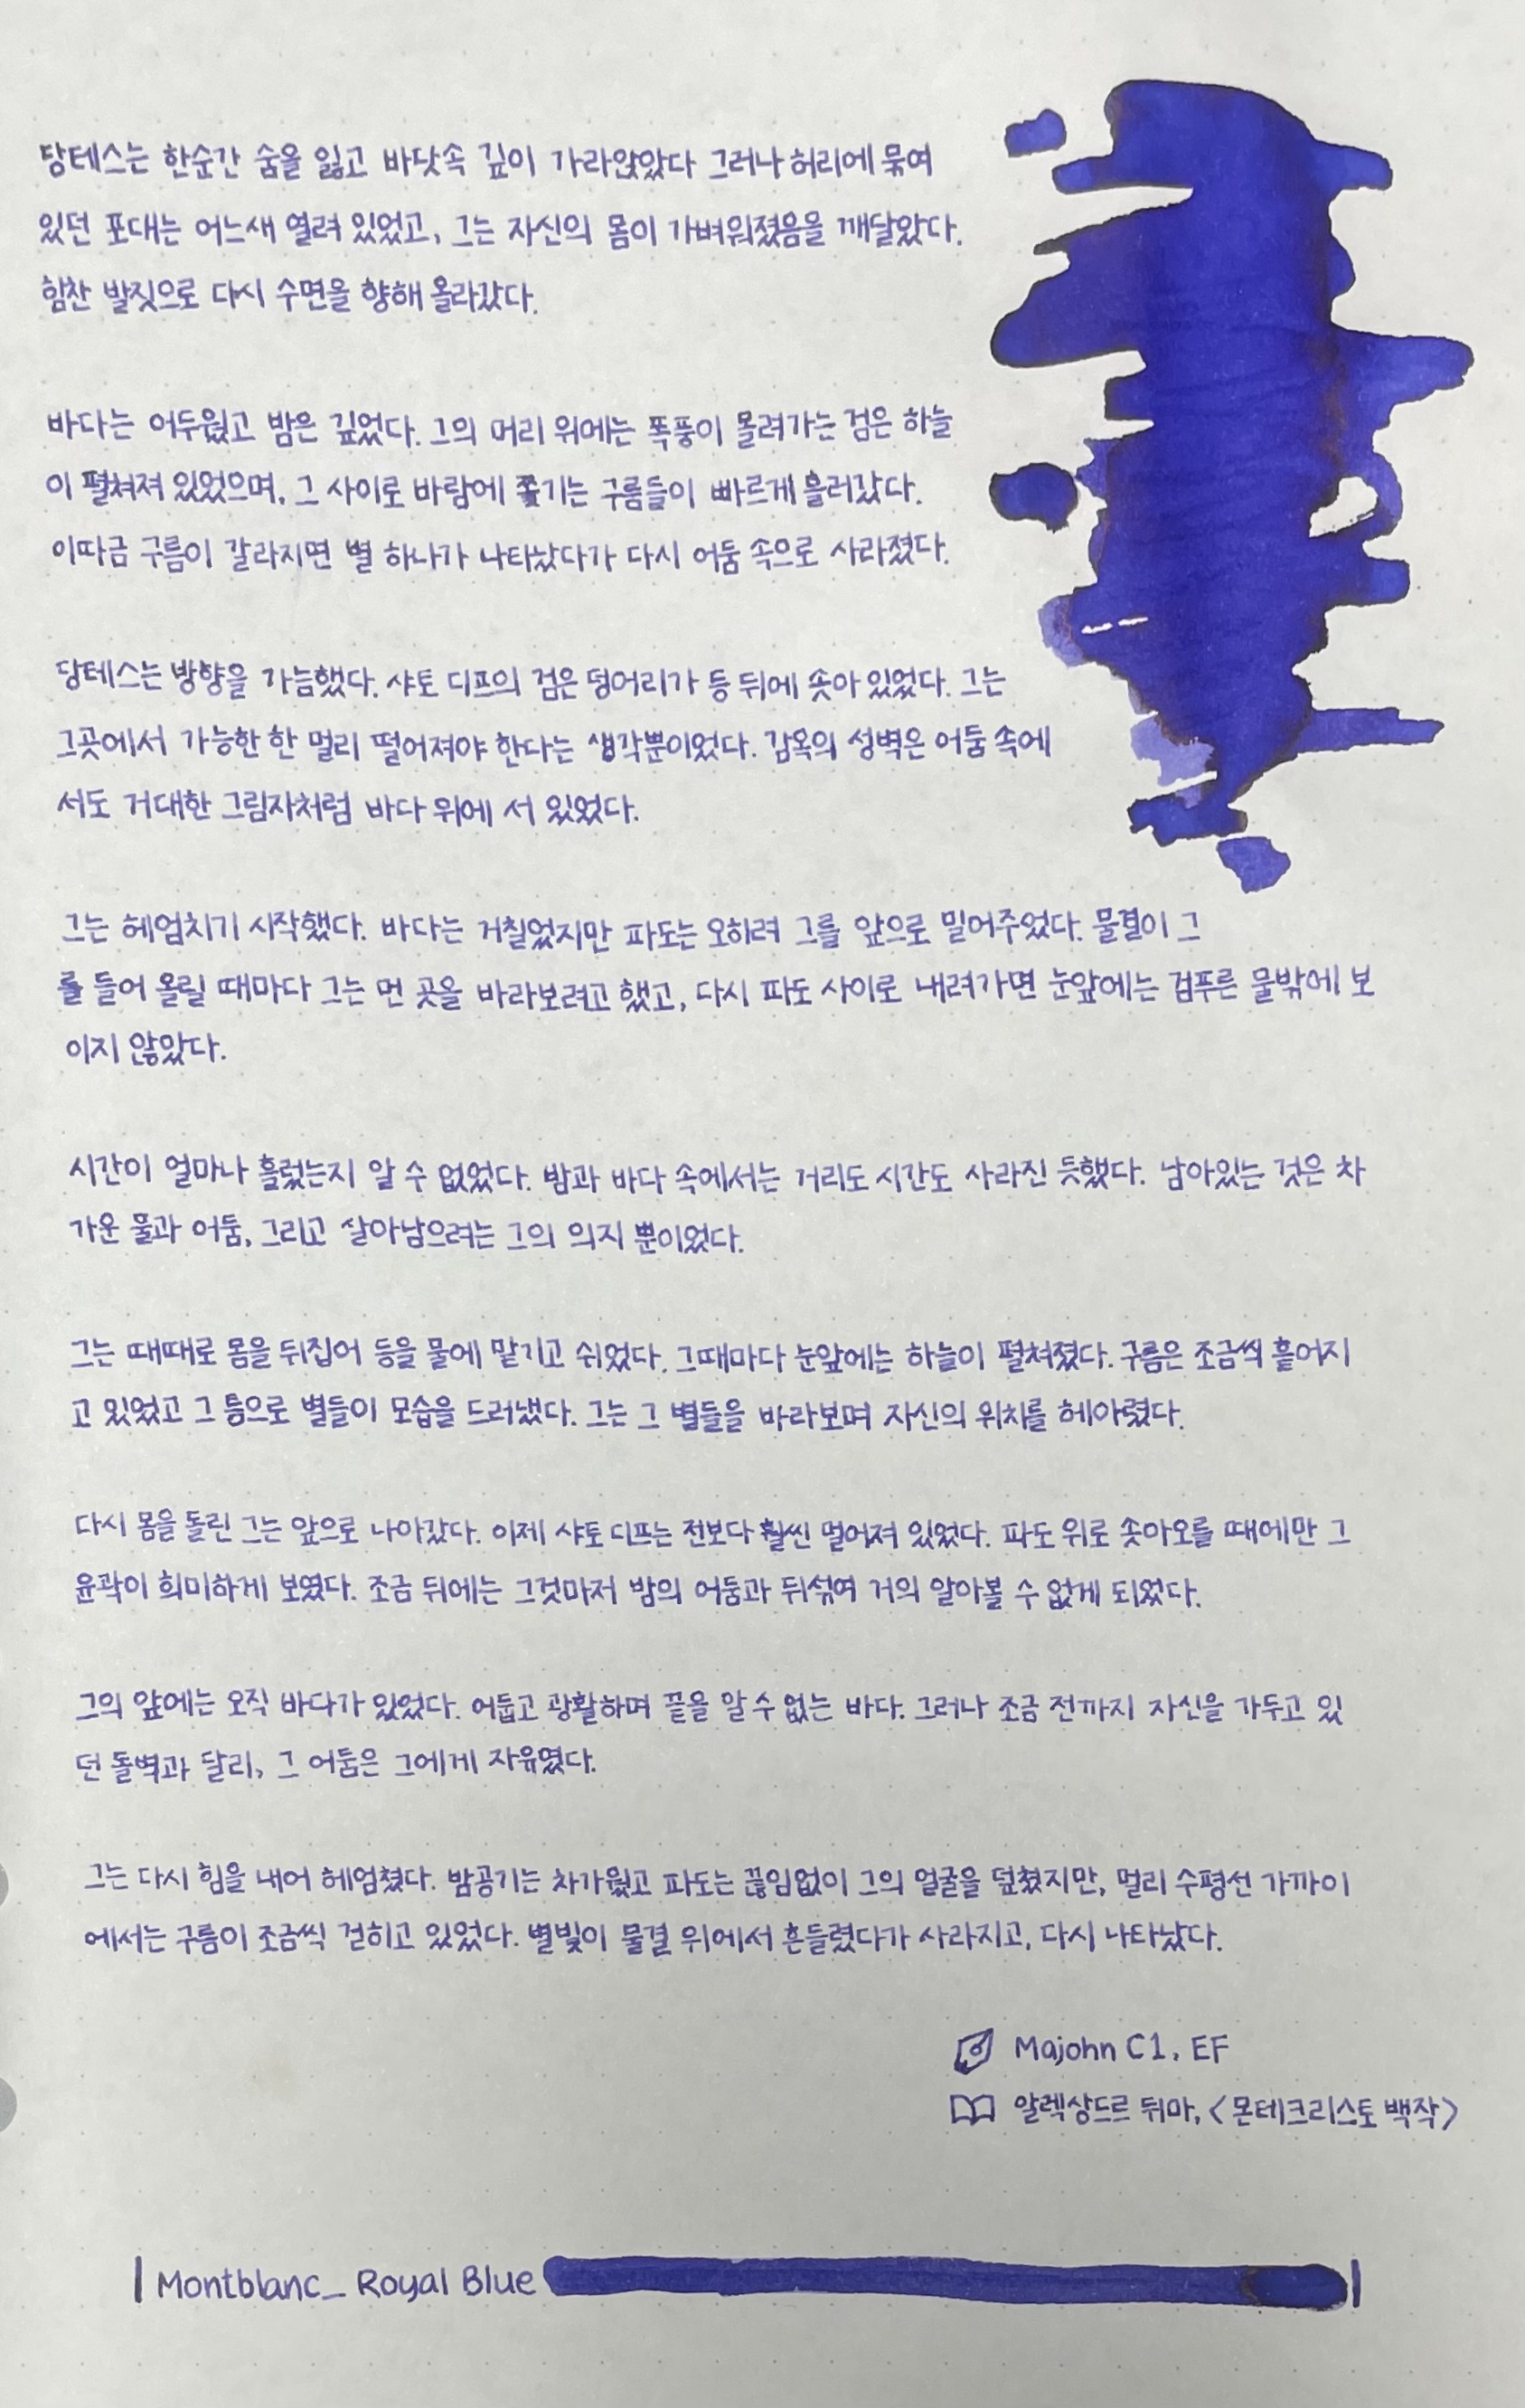 당테스는 한순간 숨을 잃고 바닷속 깊이 가라앉았다 그러나 허리에 묶여
있던 포대는 어느새 열려 있었고, 그는 자신의 몸이 가벼워졌음을 깨달았다.
힘찬 발짓으로 다시 수면을 향해 올라갔다.
바다는 어두웠고 밤은 깊었다. 그의 머리 위에는 폭풍이 몰려가는 검은 하늘
이 펼쳐져 있었으며, 그 사이로 바람에 쫓기는 구름들이 빠르게 흘러갔다.
이따금 구름이 갈라지면 별 하나가 나타났다가 다시 어둠 속으로 사라졌다.
당테스는 방향을 가늠했다. 샤토 디프의 검은 덩어리가 등 뒤에 솟아 있었다. 그는
그곳에서 가능한 한 멀리 떨어져야 한다는 생각뿐이었다. 감옥의 성벽은 어둠 속에
서도 거대한 그림자처럼 바다 위에 서 있었다.
그는 헤엄치기 시작했다. 바다는 거칠었지만 파도는 오히려 그를 앞으로 밀어주었다. 물결이 그
를 들어 올릴 때마다 그는 먼 곳을 바라보려고 했고, 다시 파도 사이로 내려가면 눈앞에는 검푸른 물밖에 보
이지 않았다.
시간이 얼마나 흘렀는지 알 수 없었다. 밤과 바다 속에서는 거리도 시간도 사라진 듯했다. 남아있는 것은 차
가운 물과 어둠, 그리고 살아남으려는 그의 의지 뿐이었다.
그는 때때로 몸을 뒤집어 등을 물에 맡기고 쉬었다. 그때마다 눈앞에는 하늘이 펼쳐졌다. 구름은 조금씩 흩어지
고 있었고 그 틈으로 별들이 모습을 드러냈다. 그는 그 별들을 바라보며 자신의 위치를 헤아렸다.
다시 몸을 돌린 그는 앞으로 나아갔다. 이제 샤토 디프는 전보다 훨씬 멀어져 있었다. 파도 위로 솟아오를 때에만 그
윤곽이 희미하게 보였다. 조금 뒤에는 그것마저 밤의 어둠과 뒤섞여 거의 알아볼 수 없게 되었다.
그의 앞에는 오직 바다가 있었다. 어둡고 광활하며 끝을 알 수 없는 바다. 그러나 조금 전까지 자신을 가두고 있
던 돌벽과 달리, 그 어둠은 그에게 자유였다.
그는 다시 힘을 내어 헤엄쳤다. 밤공기는 차가웠고 파도는 끊임없이 그의 얼굴을 덮쳤지만, 멀리 수평선 가까이
에서는 구름이 조금씩 걷히고 있었다. 별빛이 물결 위에서 흔들렸다가 사라지고, 다시 나타났다.
Majohn C1, EF
알렉상드르 뒤마, <몬테크리스토 백작>
Montblanc_ Royal Blue